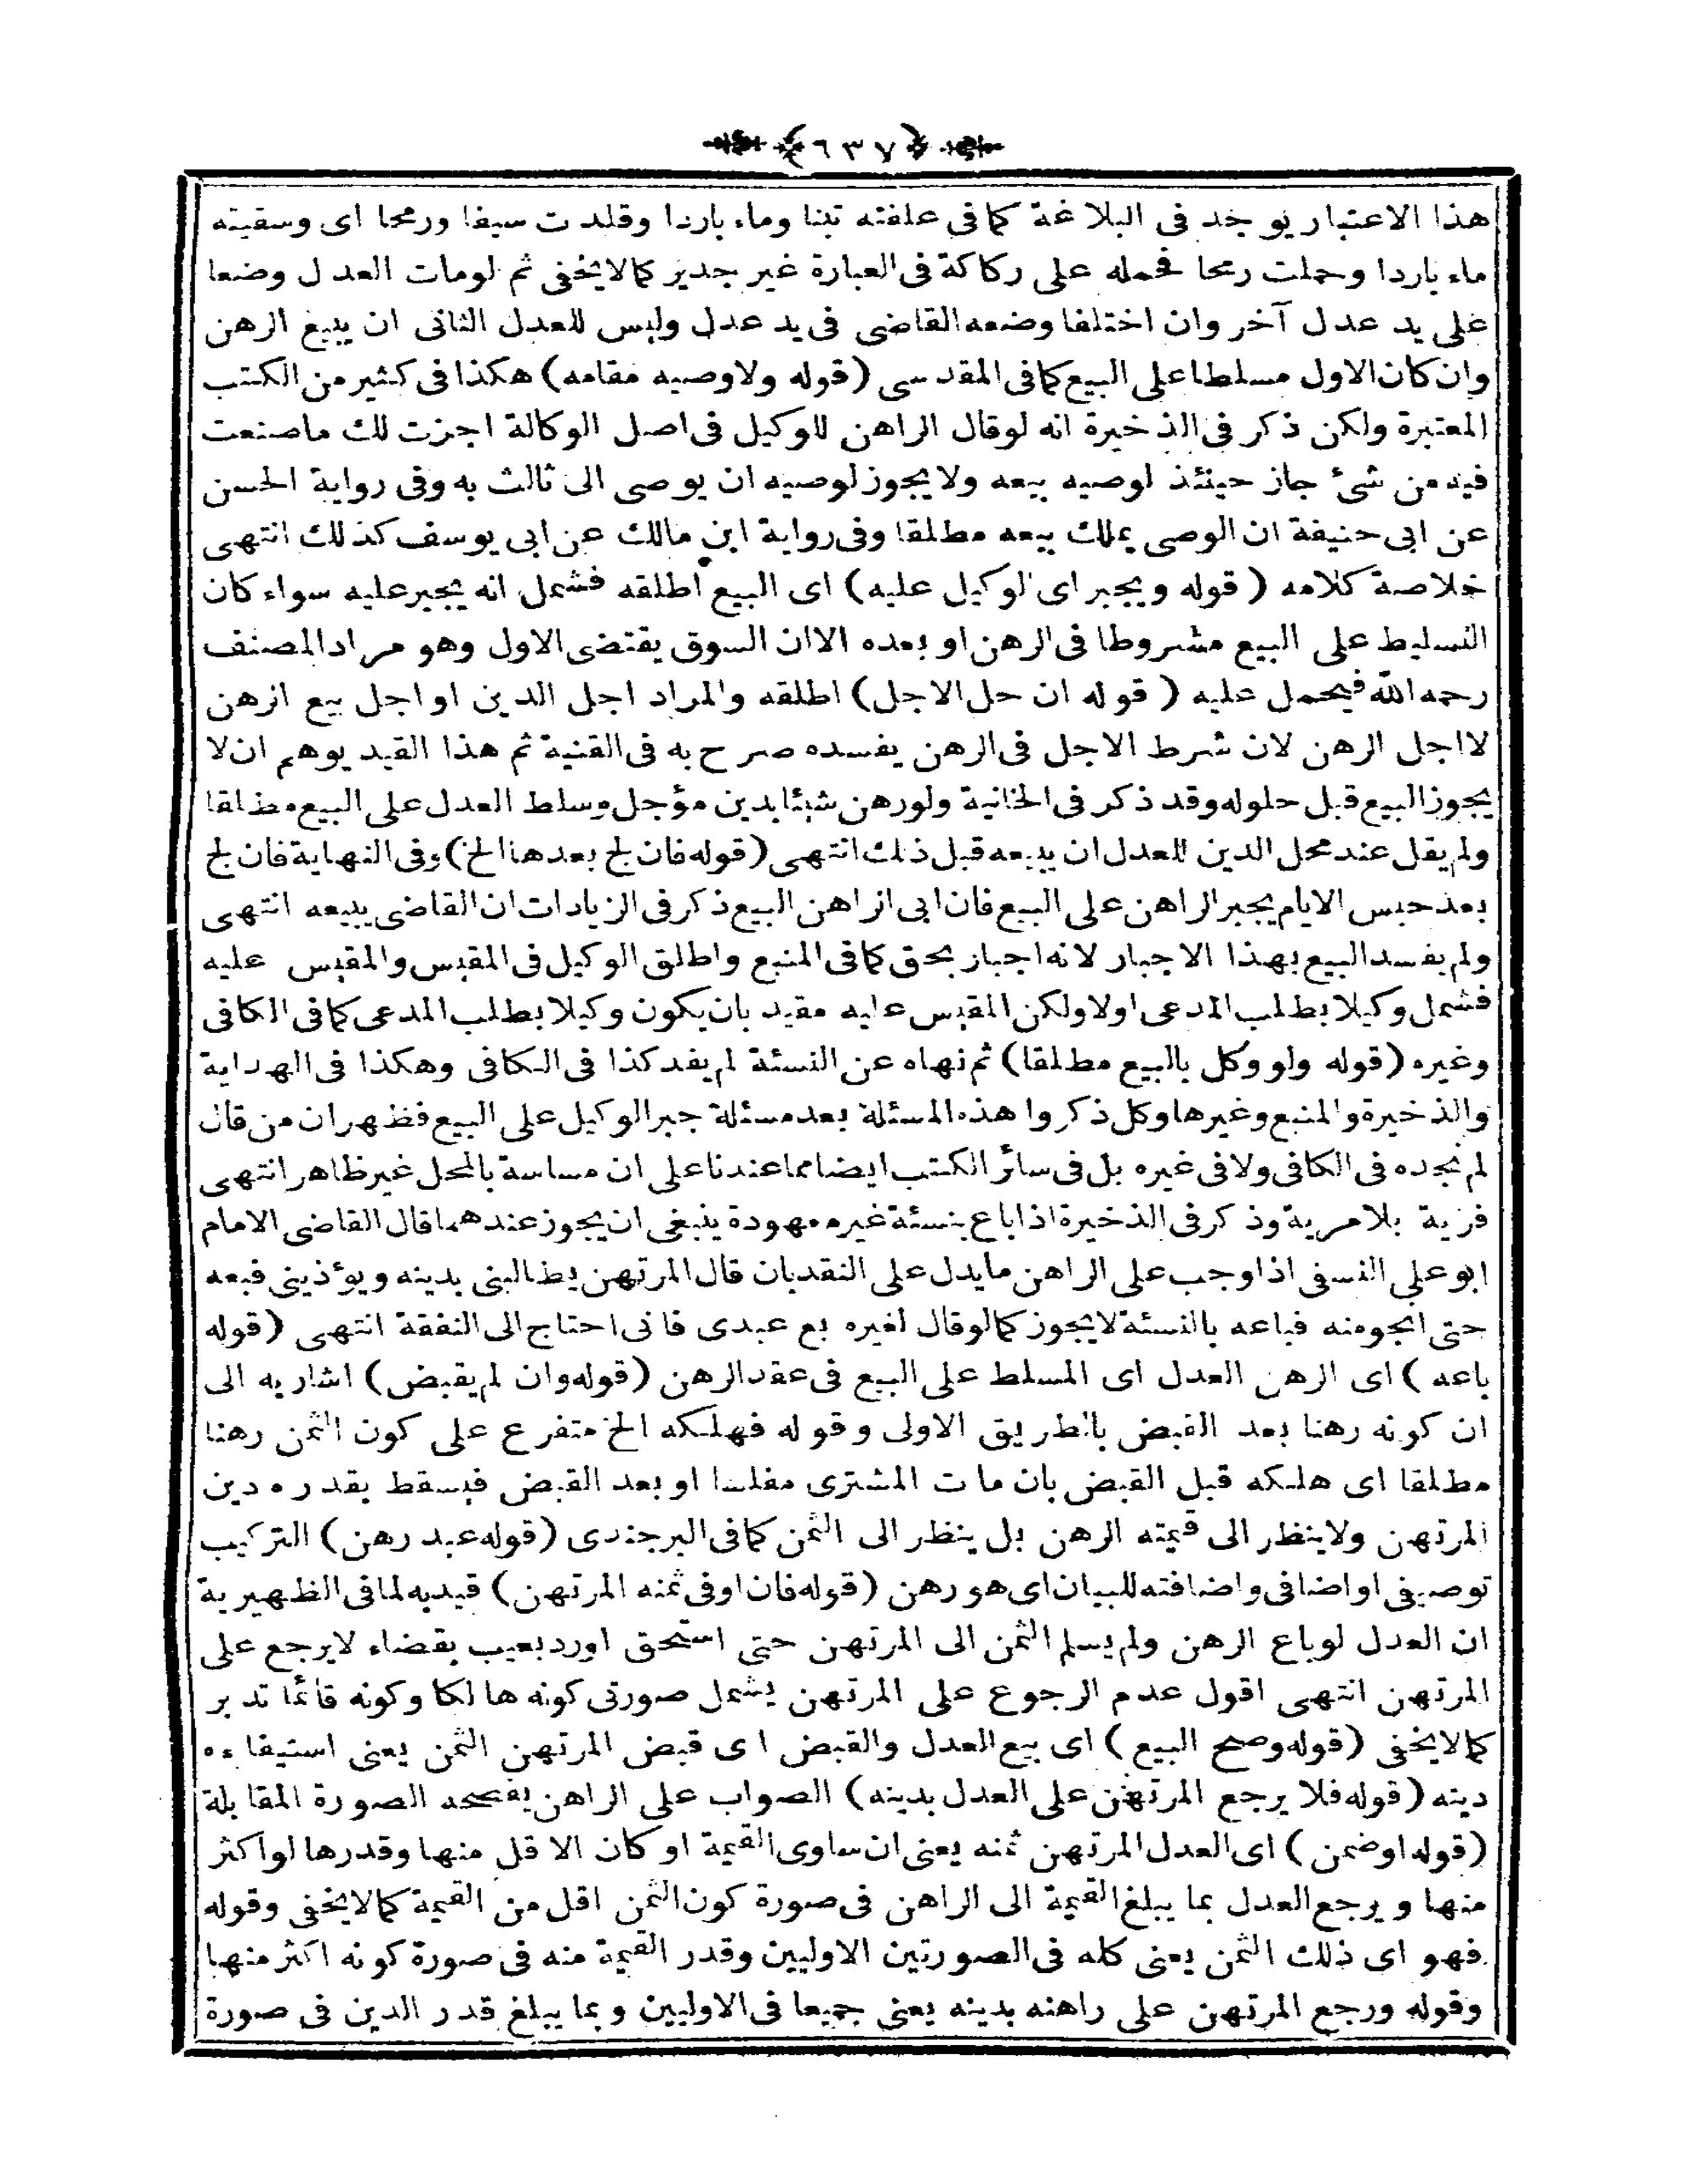 ﴿ ٦٣٧ ﴾
هذا الاعتبار يوجد فى البلاغة كما فى علفته تبنا وماء باردا وقلدت سيفا ورمحا اى وسقيته
ماء باردا وحملت رمحا فحمله على ركاكة فى العبارة غير جدير كما لا يخفى ثم لو مات العدل وضعا
على يد عدل آخر وان اختلفا وضعه القاضى فى يد عدل وليس للعدل الثانى ان يبيع الرهن
وان كان الاول مسلطا على البيع كما فى المقدسى (قوله ولا وصيه مقامه) هكذا فى كثير من الكتب
المعتبرة ولكن ذكر فى الذخيرة انه لو قال الراهن للوكيل فى اصل الوكالة اجزت لك ما صنعت
فيه من شئ جاز حينئذ لوصيه بيعه ولا يجوز لوصيه ان يوصى الى ثالث به وفى رواية الحسن
عن ابى حنيفة ان الوصى يملك بيعه مطلقا وفى رواية ابن مالك عن ابى يوسف كذلك انتهى
خلاصة كلامه (قوله ويجبر اى لوكيل عليه) اى البيع اطلقه فشمل انه يجبر عليه سواء كان
التسليط على البيع مشروطا فى الرهن او بعده الا ان السوق يقتضى الاول وهو مراد المصنف
رحمه الله فيحمل عليه (قوله ان حل الاجل) اطلقه والمراد اجل الدين او اجل بيع الرهن
لا اجل الرهن لان شرط الاجل فى الرهن يفسده صرح به فى القنية ثم هذا القيد يوهم ان لا
يجوز البيع قبل حلوله وقد ذكر فى الخانية ولو رهن شيئا بدين مؤجل وسلط العدل على البيع مطلقا
ولم يقل عند محل الدين للعدل ان يبيعه قبل ذلك انتهى (قوله فان لج بعدها الخ) وفى النهاية فان لج
بعد حبس الايام يجبر الراهن على البيع فان ابى الراهن البيع ذكر فى الزيادات ان القاضى يبيعه انتهى
ولم يفسد البيع بهذا الاجبار لانه اجبار بحق كما فى المنبع واطلق الوكيل فى المقيس والمقيس عليه
فشمل وكيلا بطلب المدعى اولا ولكن المقيس عليه مقيد بان يكون وكيلا بطلب المدعى كما فى الكافى
وغيره (قوله ولو وكل بالبيع مطلقا) ثم نهاه عن النسئة لم يفد كذا فى الكافى وهكذا فى الهداية
والذخيرة والمنبع وغيرها وكل ذكروا هذه المسئلة بعد مسئلة جبر الوكيل على البيع فظهر ان من قال
لم نجده فى الكافى ولا فى غيره بل فى سائر الكتب ايضا مما عندنا على ان مساسة بالمحل غير ظاهر انتهى
فرية بلا مرية وذكر فى الذخيرة اذا باع بنسئة غير معهودة ينبغى ان يجوز عندهما قال القاضى الامام
ابو على النسفى اذا وجب على الراهن ما يدل على النقد بان قال المرتهن يطالبنى بدينه ويؤذينى فبعه
حتى انجو منه فباعه بالنسئة لا يجوز كما لو قال لغيره بع عبدى فانى احتاج الى النفقة انتهى (قوله
باعه) اى الرهن العدل اى المسلط على البيع فى عقد الرهن (قوله وان لم يقبض) اشار به الى
ان كونه رهنا بعد القبض بالطريق الاولى وقوله فهلكه الخ متفرع على كون الثمن رهنا
مطلقا اى هلكه قبل القبض بان مات المشترى مفلسا او بعد القبض فيسقط بقدره دين
المرتهن ولا ينظر الى قيمته الرهن بل ينظر الى الثمن كما فى البرجندى (قوله عبد رهن) التركيب
توصيفى او اضافى واضافته للبيان اى هو رهن (قوله فان اوفى ثمنه المرتهن) قيد به لما فى الظهيرية
ان العدل لو باع الرهن ولم يسلم الثمن الى المرتهن حتى استحق او رد بعيب بقضاء لا يرجع على
المرتهن انتهى اقول عدم الرجوع على المرتهن يشمل صورتى كونه هالكا وكونه قائما تدبر
كما لا يخفى (قوله وصح البيع) اى بيع العدل والقبض اى قبض المرتهن الثمن يعنى استيفاءه
دينه (قوله فلا يرجع المرتهن على العدل بدينه) الصواب على الراهن يفصحه الصورة المقابلة
(قوله او ضمن) اى العدل المرتهن ثمنه يعنى ان ساوى القيمة او كان الاقل منها وقدرها لو اكثر
منها ويرجع العدل بما يبلغ القيمة الى الراهن فى صورة كون الثمن اقل من القيمة كما لا يخفى وقوله
فهو اى ذلك الثمن يعنى كله فى الصورتين الاوليين وقدر القيمة منه فى صورة كونه اكثر منها
وقوله ورجع المرتهن على راهنه بدينه يعنى جميعا فى الاوليين وبما يبلغ قدر الدين فى صورة